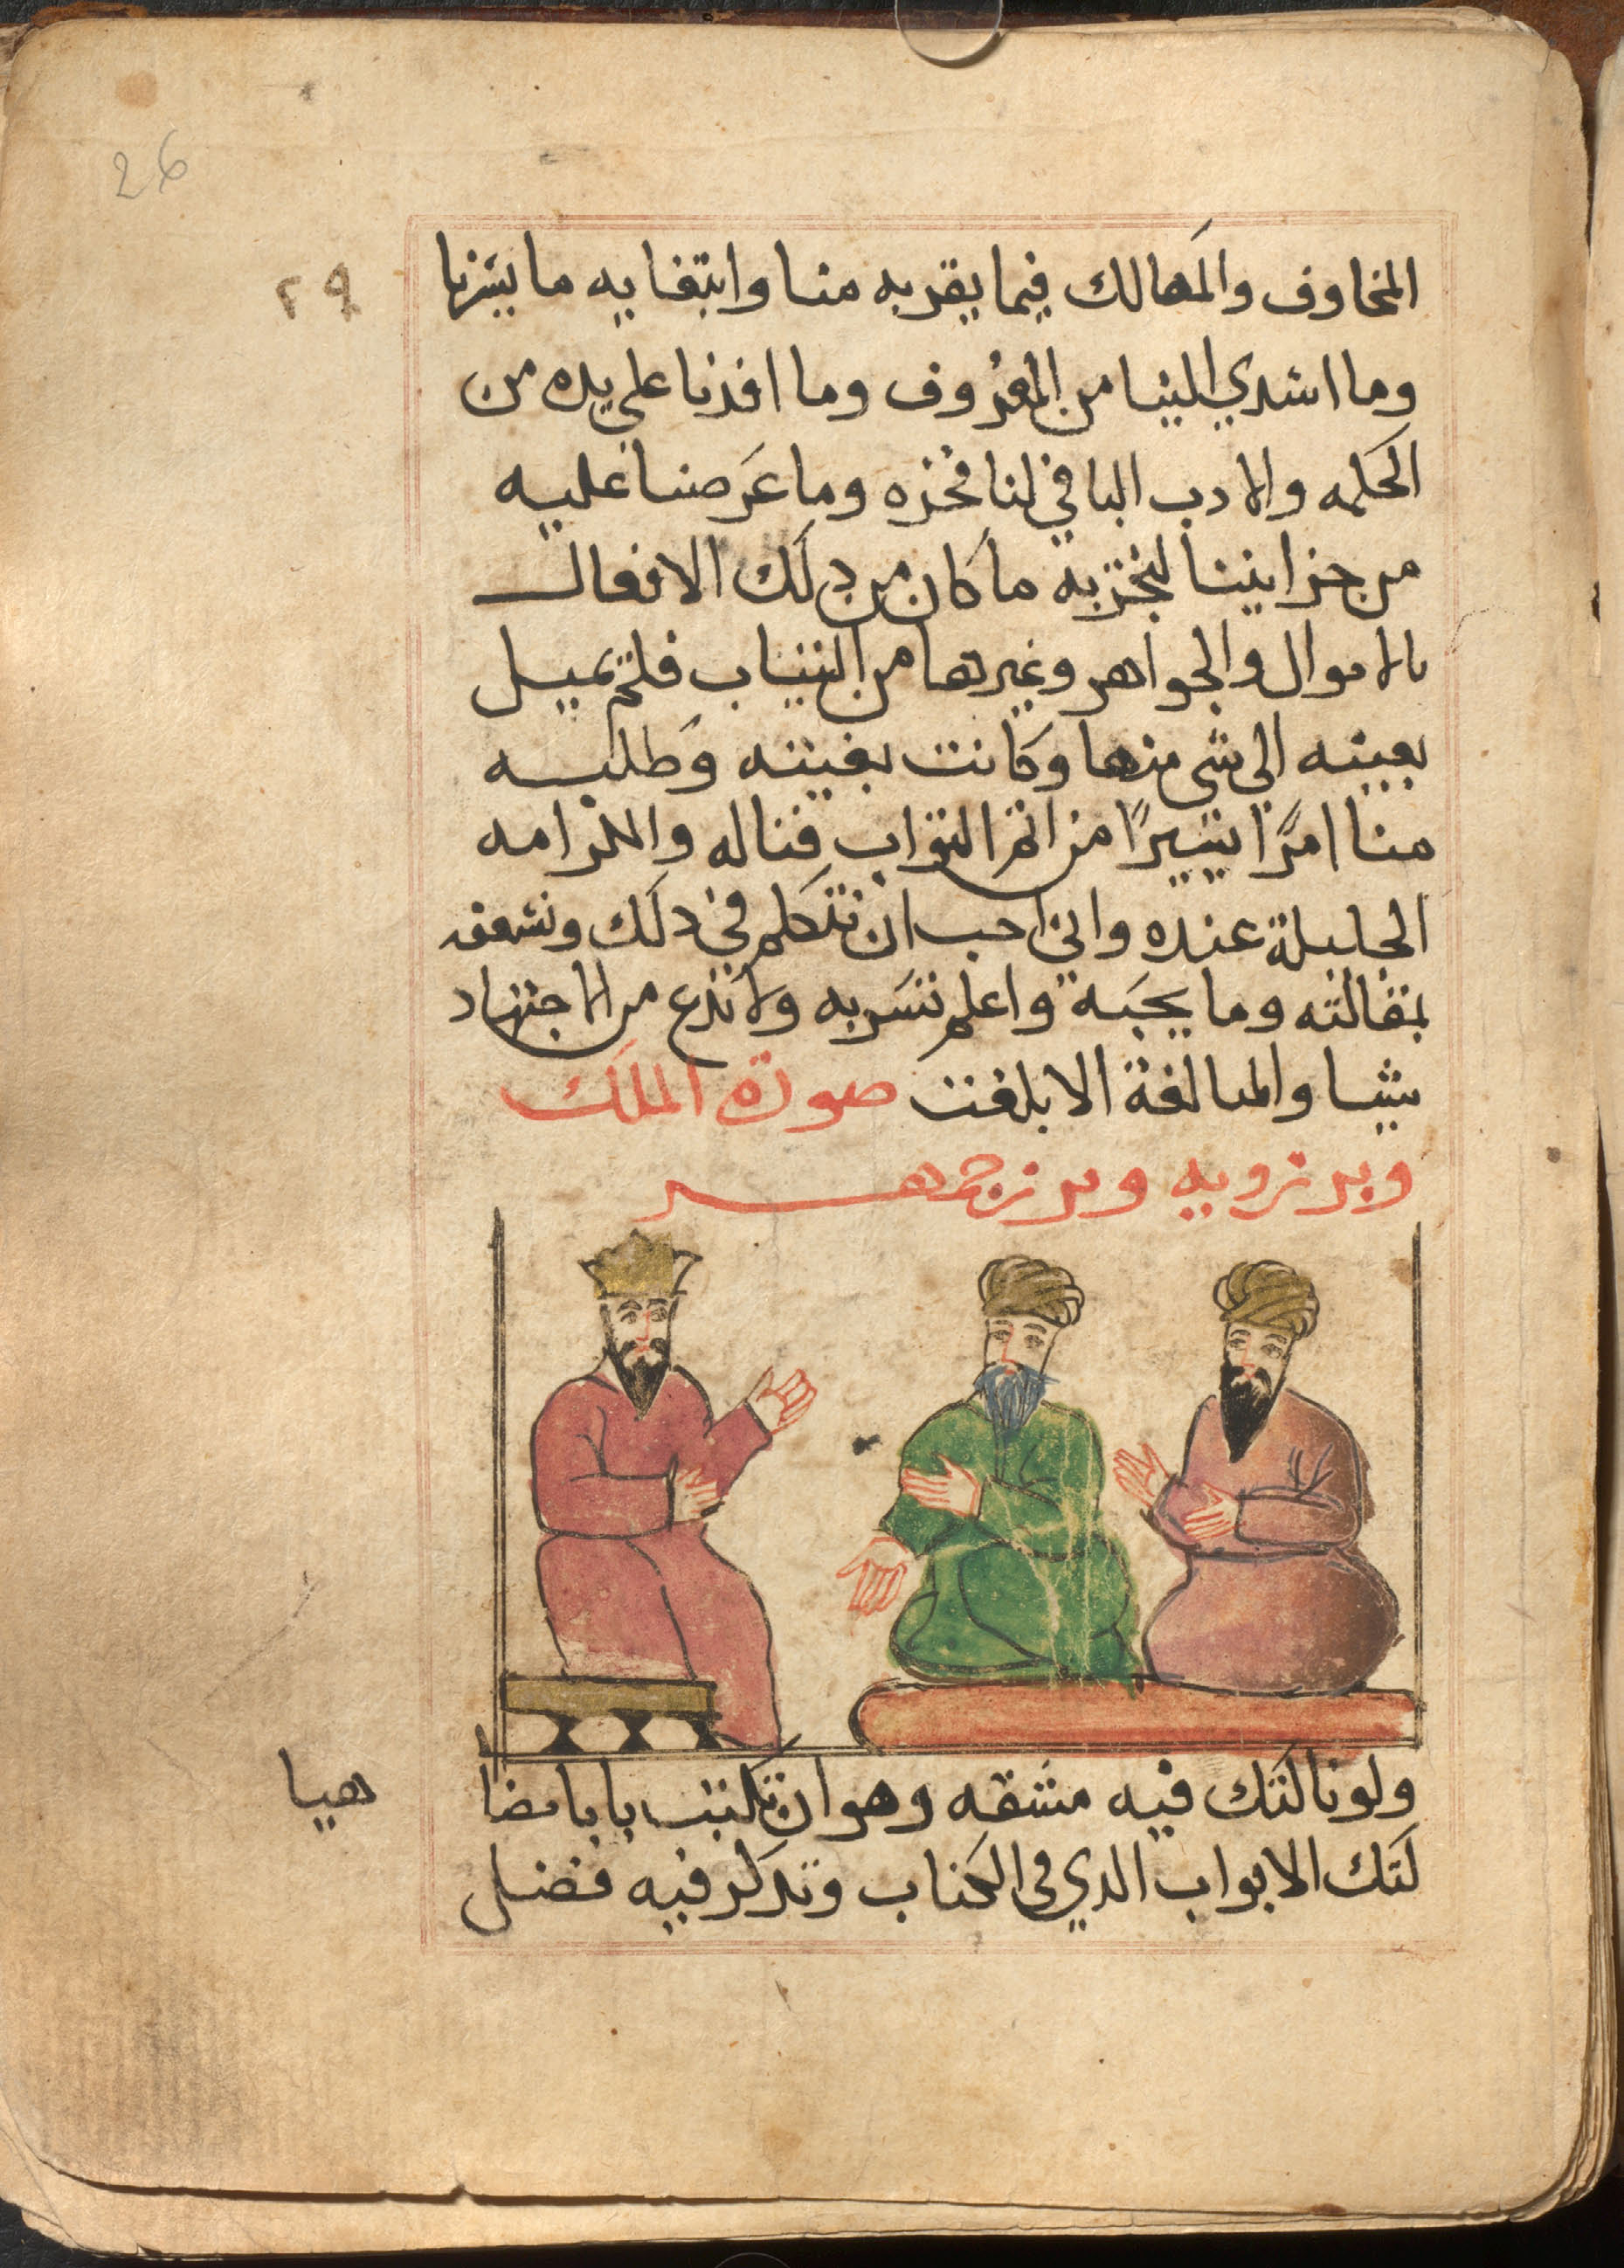 26
٢٩
المخاوف والمهالك فيما يقربه منا وابتغايه ما يسرنا
وما اسدي الينا من المعروف وما افدنا علي يده من
الحكمه والادب الباقي لنا فخره وما عرضنا عليه
من خزايننا لنجزيه ما كان من دلك الافعال
بالاموال والجواهر وغيرها من الثياب فلم تميل
بعينه الي شي منها وكانت بغيته وطلبه
منا امرًا يسيرًا من اتم الثواب فناله والكرامه
الجليلة عنده واني احب ان تتكلم في دلك ونشعفه
بمقالته وما يحبه واعلم نسر به ولا تدع من الاجتهاد
شيا والمبالغة الا بلغت صورة الملك
وبرزويه وبرزجمهر
ولو نالتك فيه مشقه وهو ان تكتب بابا مضا
هيا
لتك الابواب الدي في الكتاب وتدكر فيه فضل